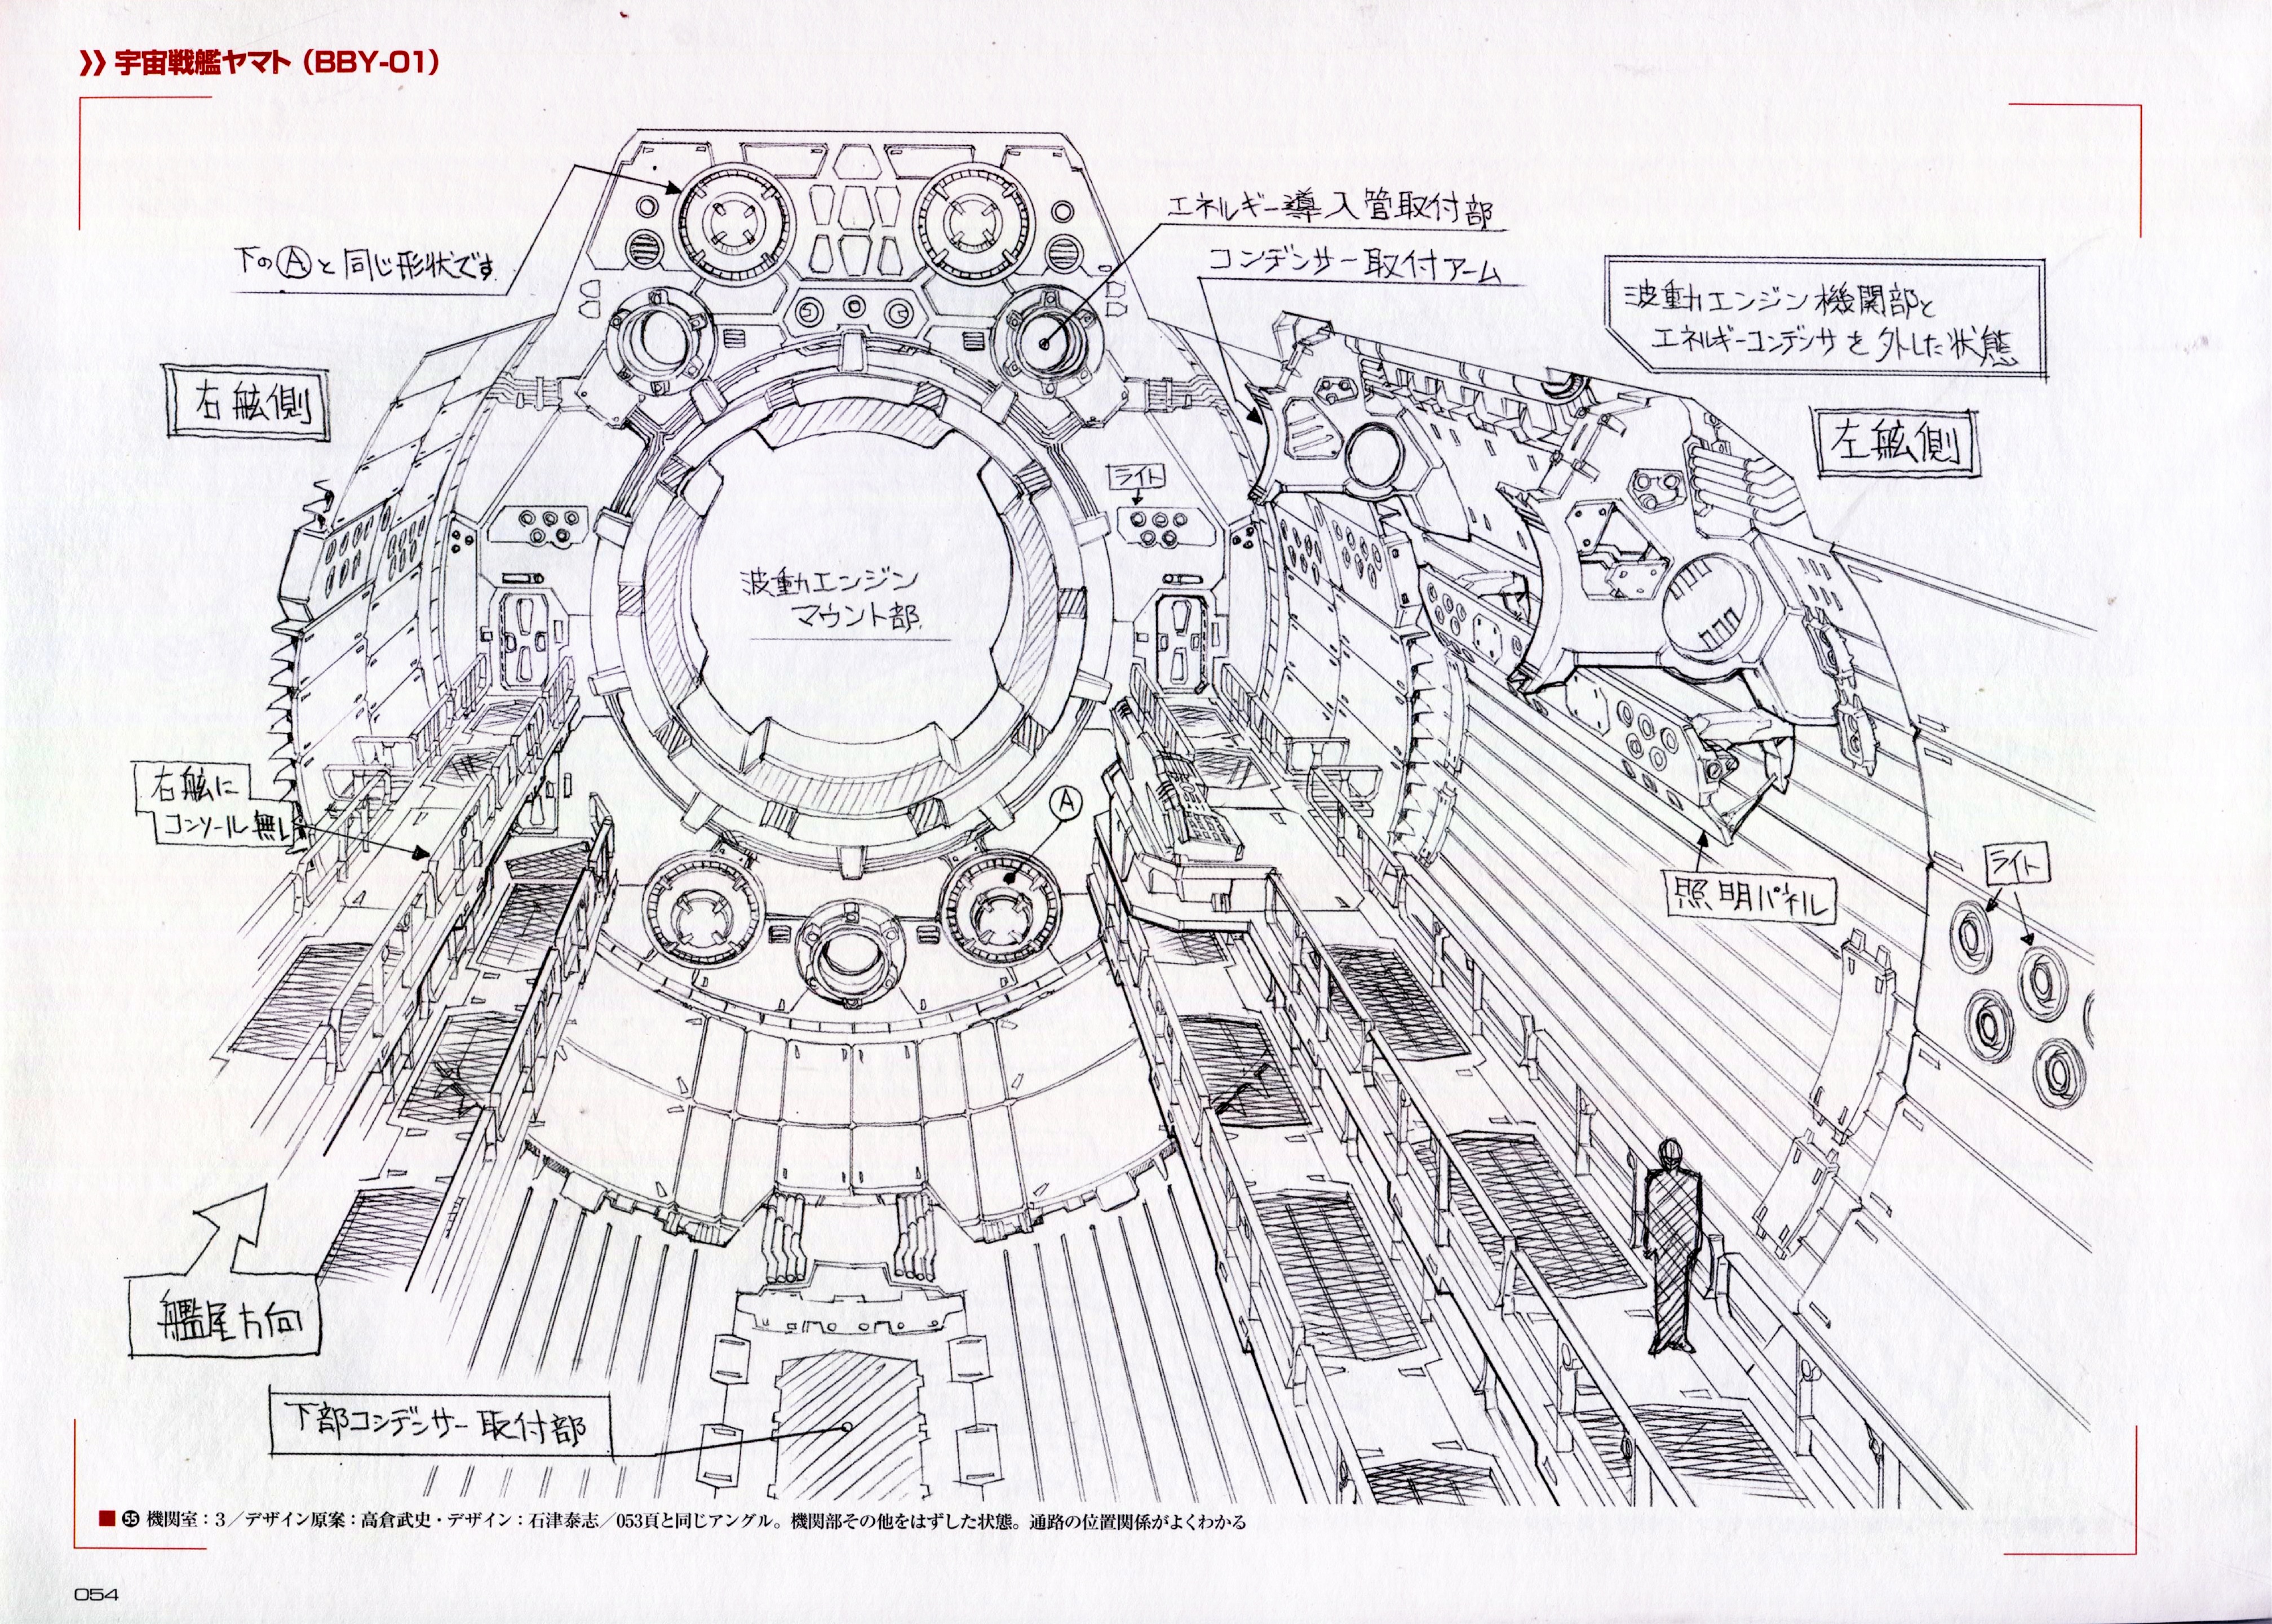 》宇宙戦艦ヤマト（BBY-01）
エネルギー導入管取付部
コンデンサー取付アーム
下のⒶと同じ形状です
波動エンジン機関部と
エネルギーコンデンサを外した状態
右舷側
左舷側
ライト
波動エンジン
マウント部
右舷に
コンソール無し
A
ライト
照明パネル
艦尾方向
下部コンデンサー取付部
■ 55 機関室：3／デザイン原案：高倉武史・デザイン：石津泰志／053頁と同じアングル。機関部その他をはずした状態。通路の位置関係がよくわかる
054